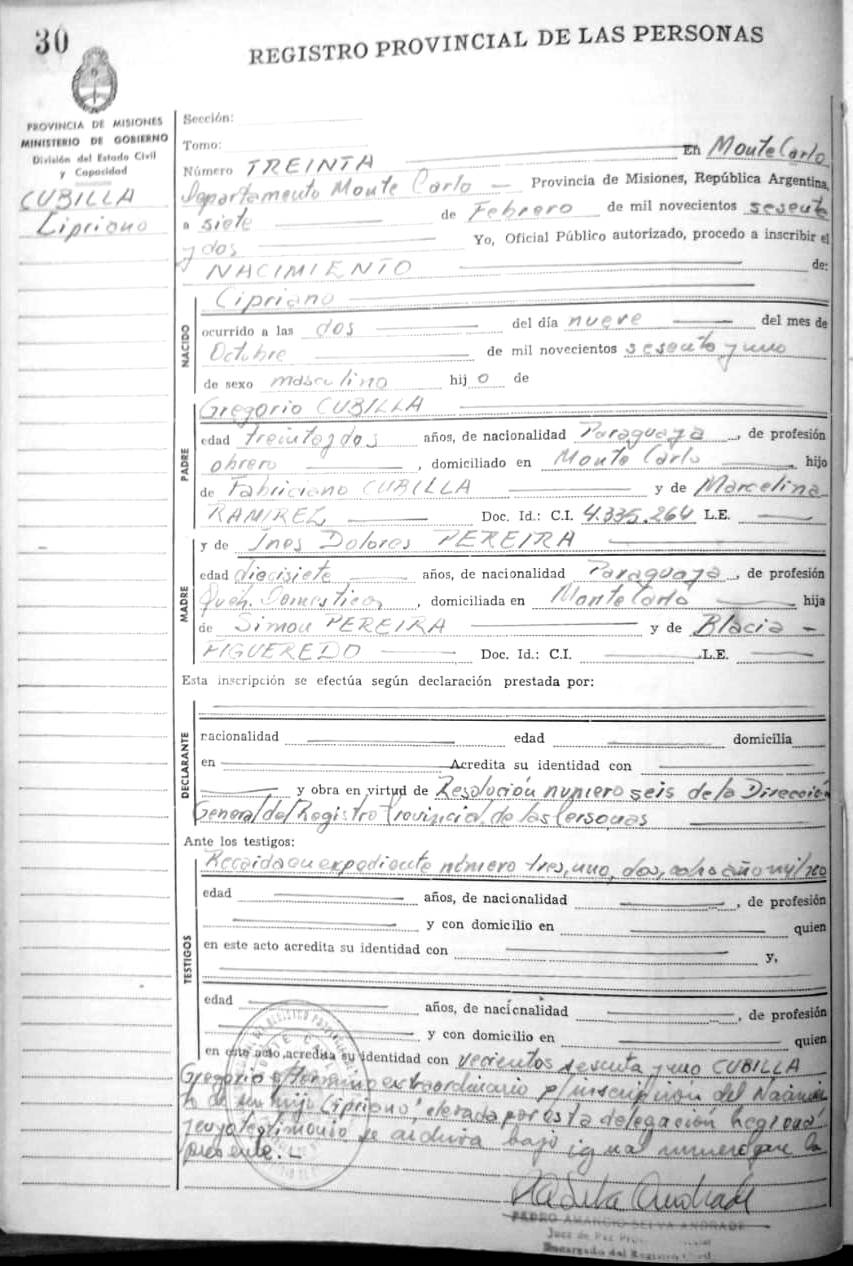 30
REGISTRO PROVINCIAL DE LAS PERSONAS
PROVINCIA DE MISIONES
MINISTERIO DE GOBIERNO
División del Estado Civil
y Capacidad
CUBILLA
Cipriano
Sección:
Tomo:
Número TREINTA En Monte Carlo
Departamento Monte Carlo — Provincia de Misiones, República Argentina,
a siete de Febrero de mil novecientos sesenta
y dos Yo, Oficial Público autorizado, procedo a inscribir el
NACIMIENTO de:
NACIDO
Cipriano
ocurrido a las dos del día nueve del mes de
Octubre de mil novecientos sesenta y uno
de sexo masculino hijo de
PADRE
Gregorio CUBILLA
edad treinta y dos años, de nacionalidad Paraguaya, de profesión
obrero, domiciliado en Monte Carlo hijo
de Fabriciano CUBILLA y de Marcelina
RAMIREZ Doc. Id.: C.I. 4.335.264 L.E.
y de Ines Dolores PEREIRA
MADRE
edad diecisiete años, de nacionalidad Paraguaya, de profesión
Queh. Domesticos, domiciliada en Monte Carlo hija
de Simon PEREIRA y de Blacia —
FIGUEREDO Doc. Id.: C.I. L.E.
Esta inscripción se efectúa según declaración prestada por:
DECLARANTE
nacionalidad edad domicilia
en Acredita su identidad con
y obra en virtud de Resolución numero seis de la Dirección
General del Registro Provincial de las Personas
Ante los testigos:
Recaida en expediente número tres, uno, dos, ocho año mil no
TESTIGOS
edad años, de nacionalidad, de profesión
y con domicilio en quien
en este acto acredita su identidad con y,
edad años, de nacionalidad, de profesión
y con domicilio en quien
en este acto acredita su identidad con vecientos sesenta y uno CUBILLA
Gregorio s/ termino extraordinario p/ inscripción del Nacimien
to de su hijo Cipriano, elevada por esta delegación Regional
y cuyo testimonio se archiva bajo igual numero que la
presente.—
PEDRO AMANCIO SELVA ANDRADE
Juez de Paz
Encargado del Registro Civil